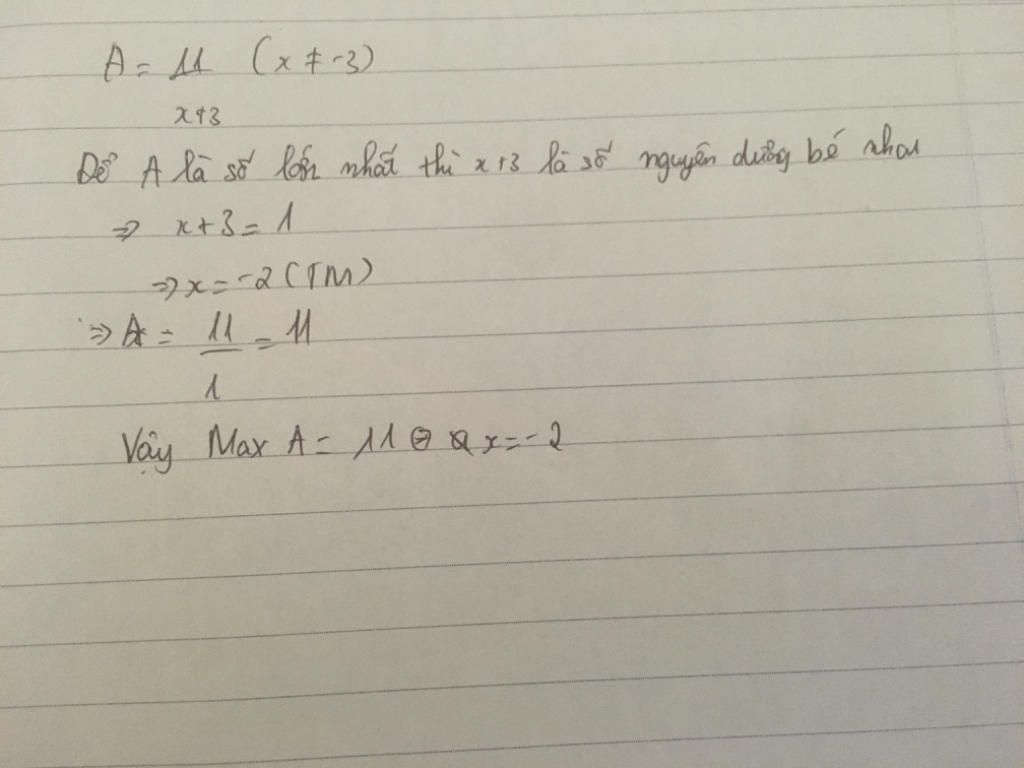 A = 11 (x ≠ -3)
x+3
Để A là số lớn nhất thì x+3 là số nguyên dương bé nhất
=> x+3 = 1
=> x = -2 (TM)
=> A = 11 = 11
1
Vậy Max A = 11 x = -2